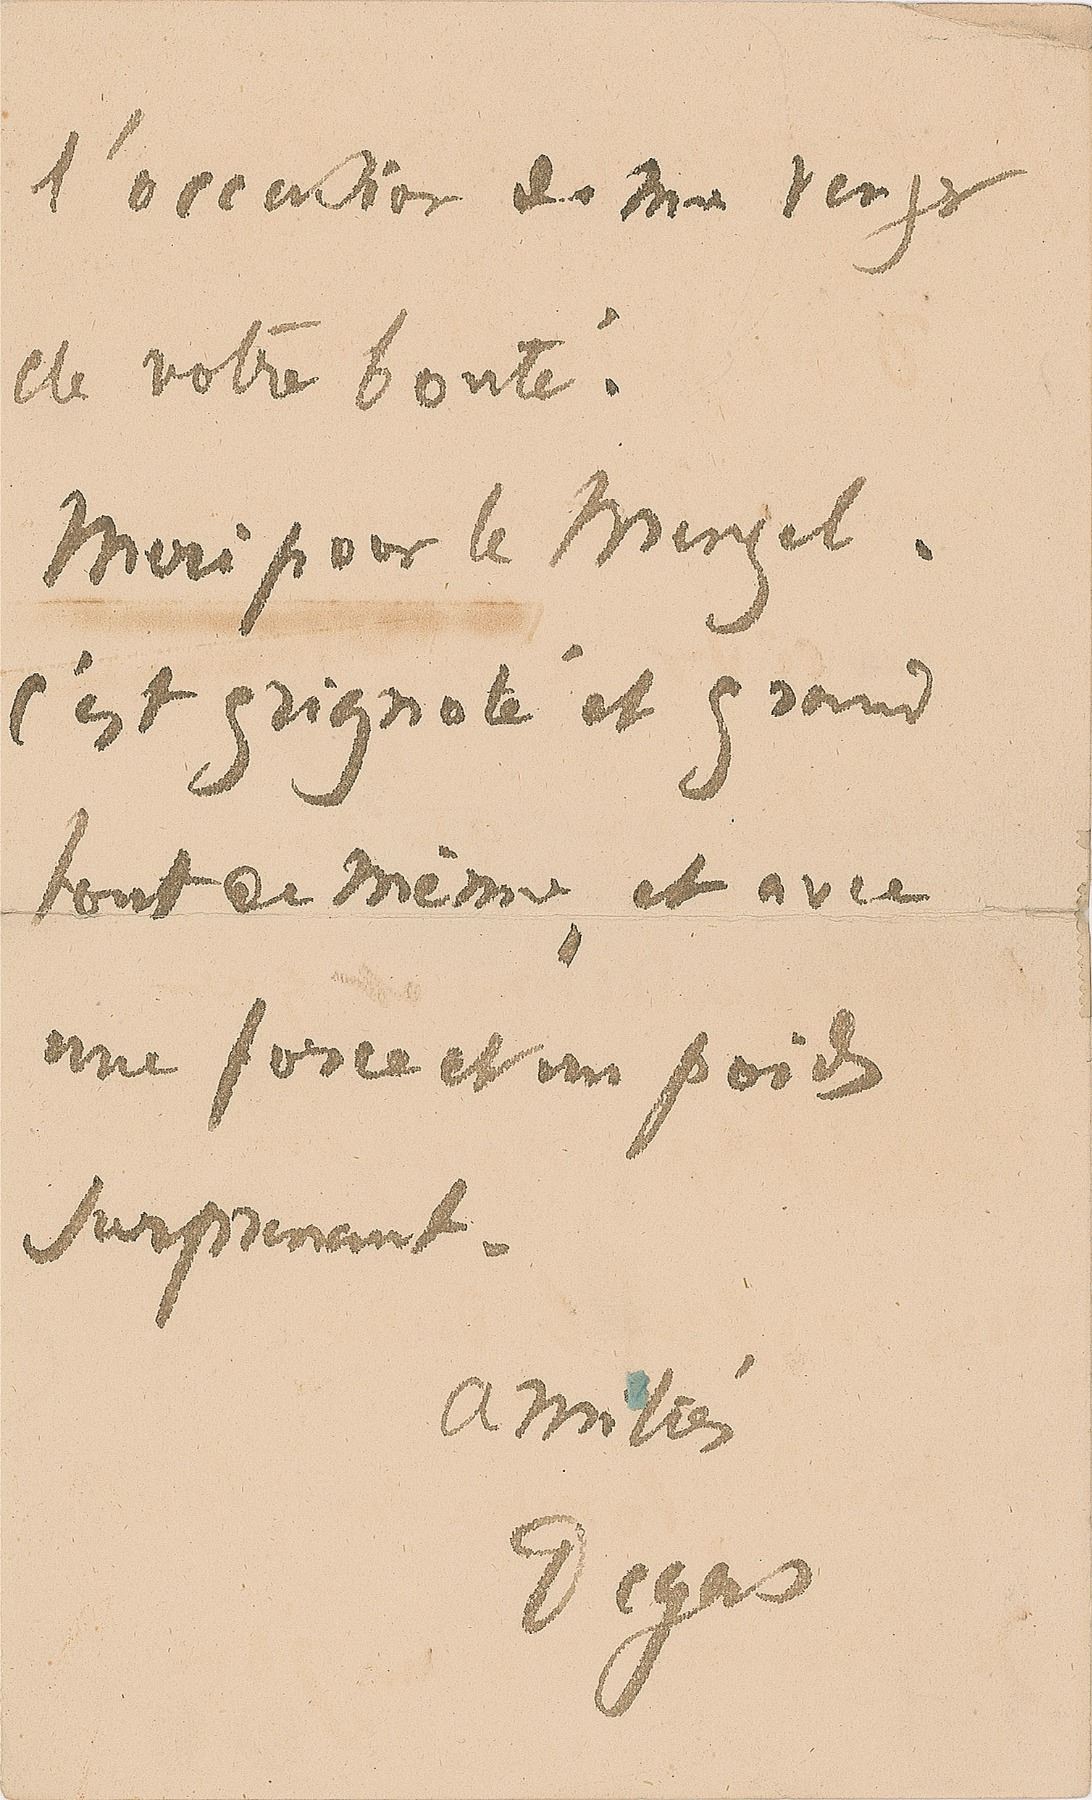 l'occasion de me venger
de votre bonté.
Merci pour le Menzel.
c'est grignoté et grand
tout de même, et avec
une force et un poids
surprenant.
amitiés
Degas